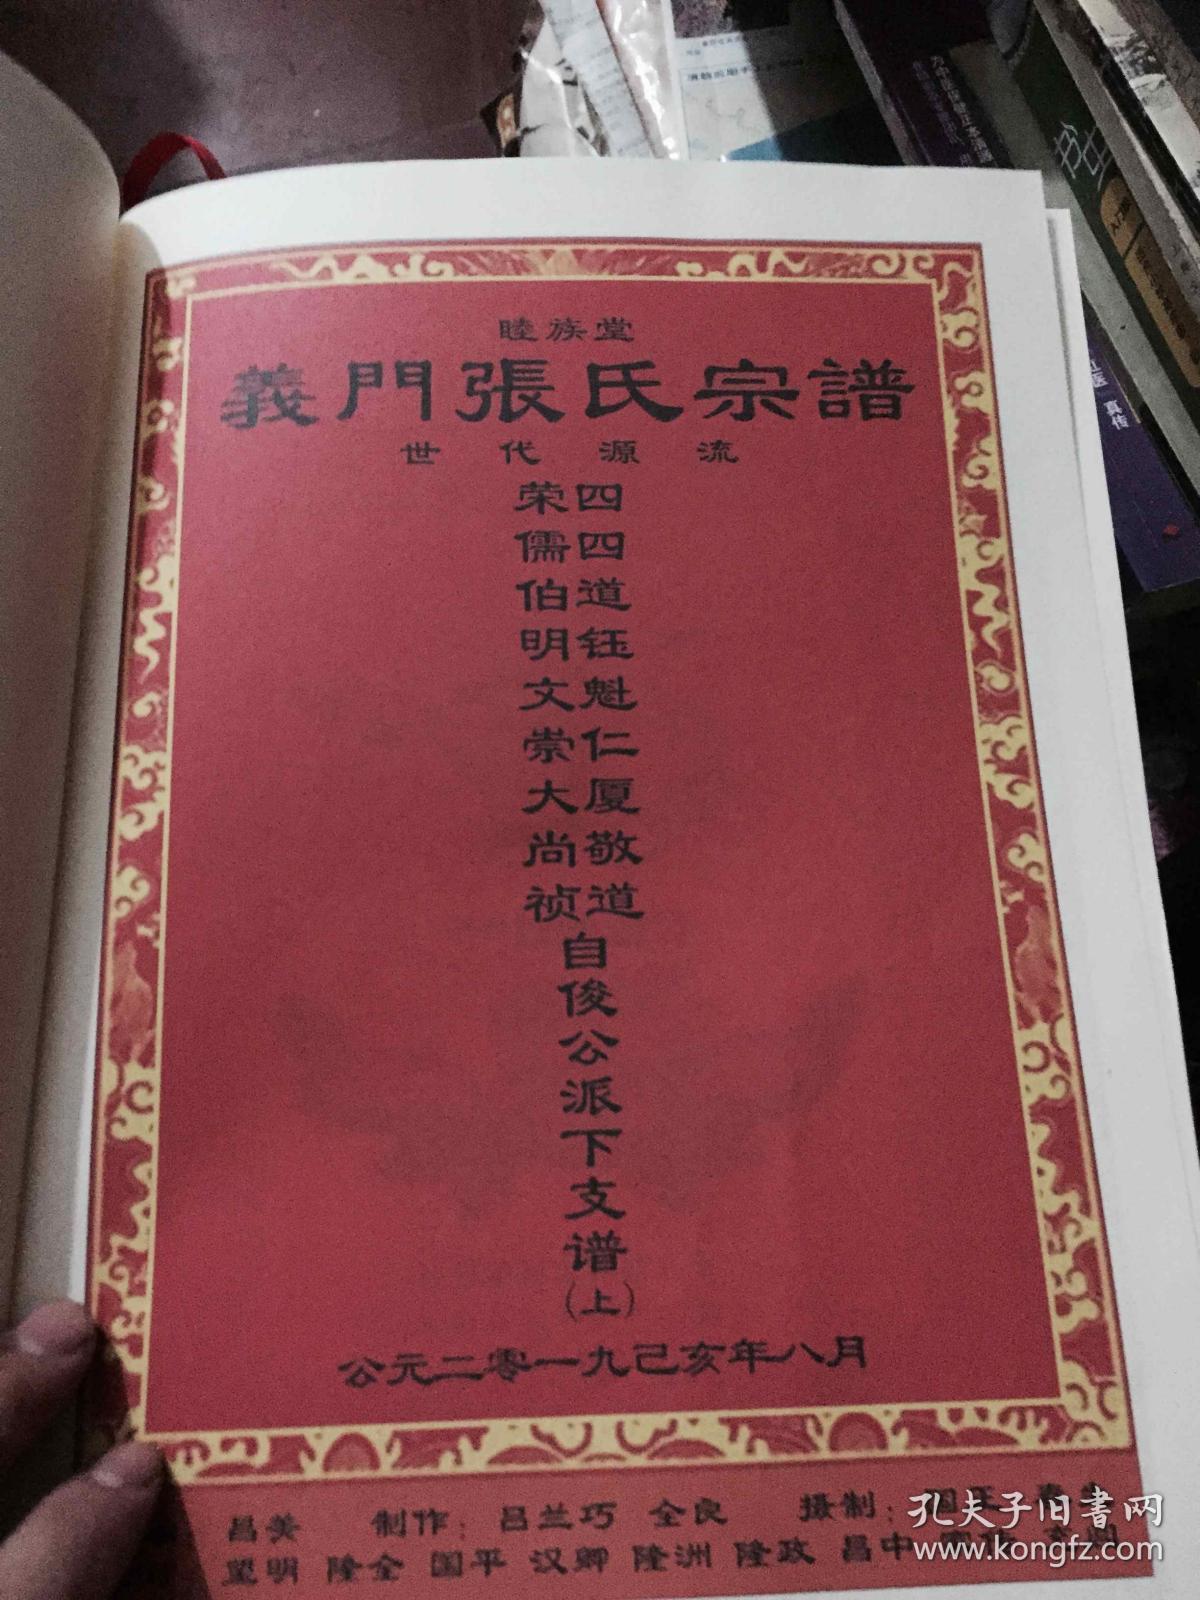 睦族堂
義門張氏宗譜
世代源流
荣四
儒四
伯道
明钰
文魁
崇仁
大厦
尚敬
祯道
自俊公派下支谱
(上)
公元二零一九己亥年八月
昌美 制作：吕兰巧 全良 摄制：
望明 隆全 国平 汉卿 隆洲 隆政 昌中
孔夫子旧书网
www.kongfz.com
真传